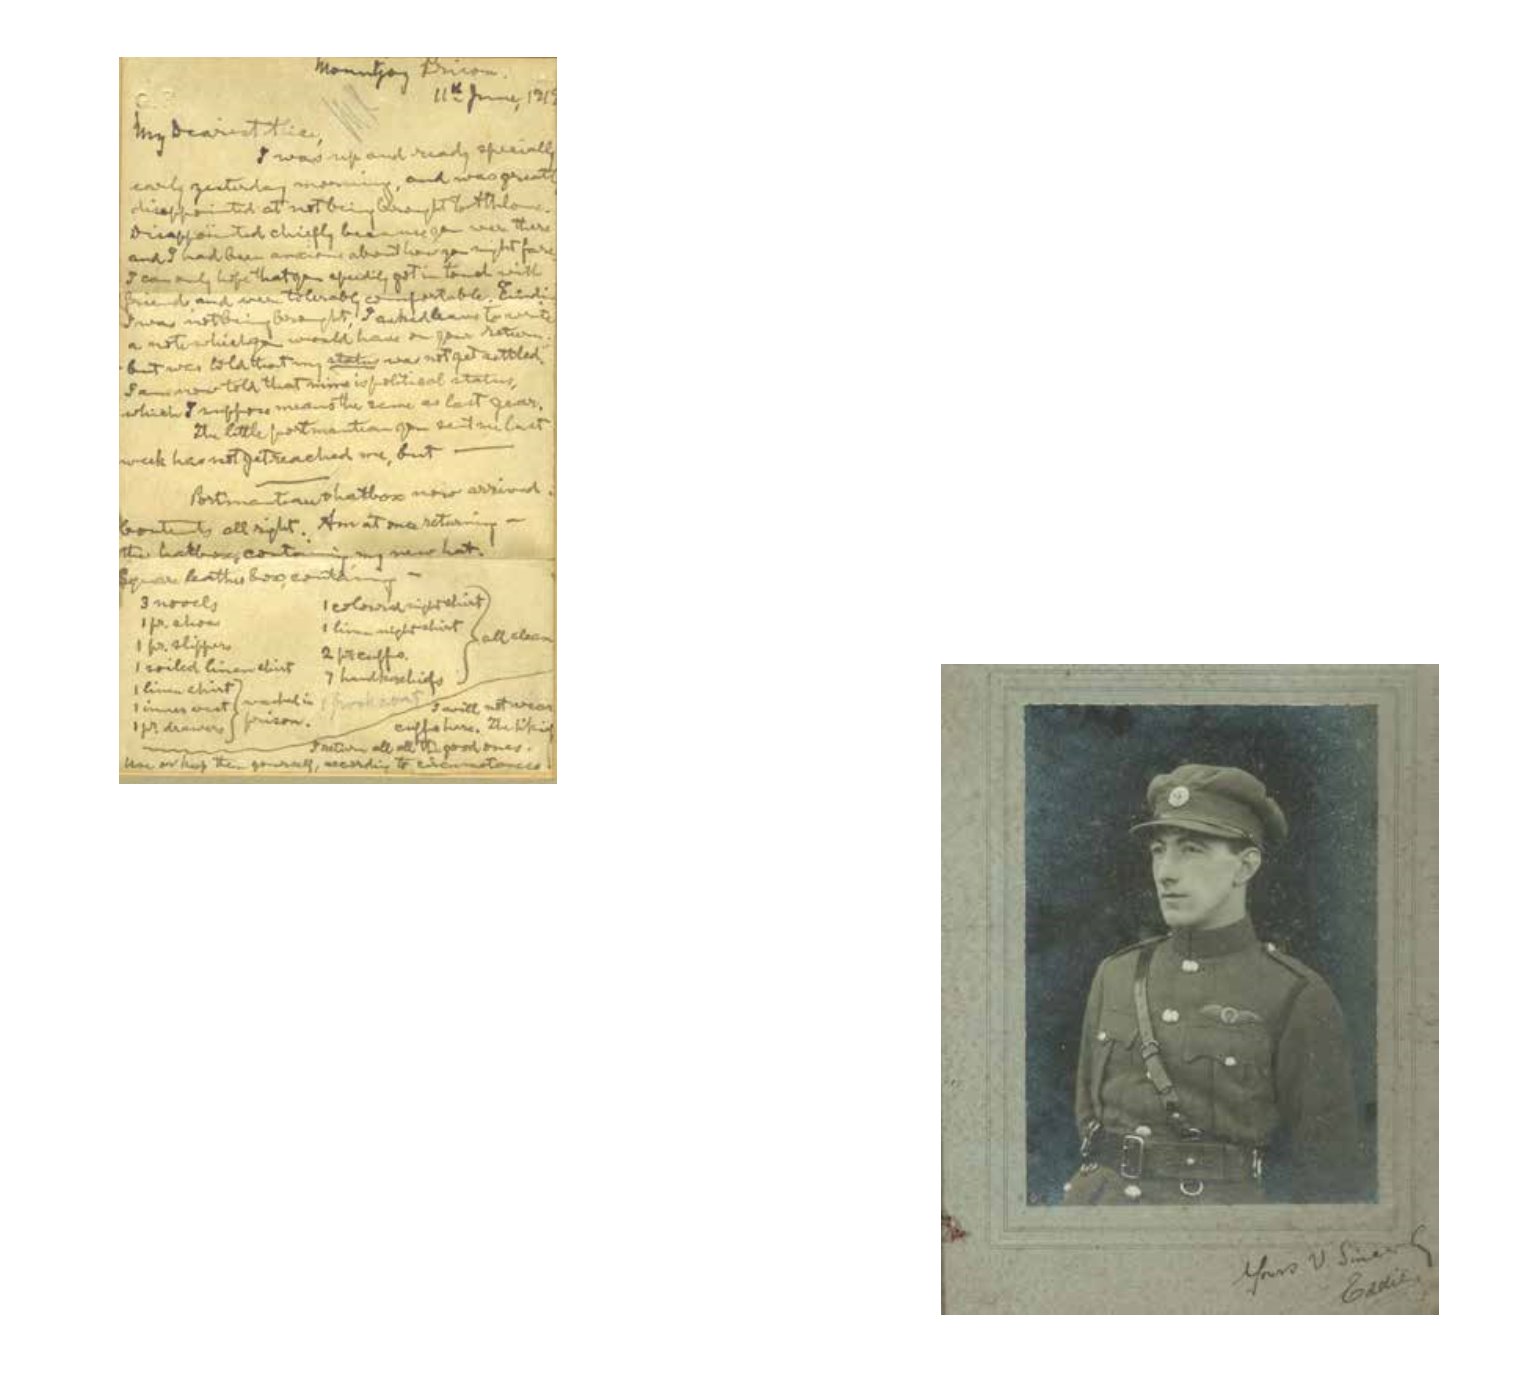 Mountjoy Prison.
11th June, 191
My Dearest Alice,
I was up and ready specially
early yesterday morning, and was greatly
disappointed at not being brought to Athlone.
Disappointed chiefly because you were there
and I had been anxious about how you might fare.
I can only hope that you speedily got in touch with
friends and were tolerably comfortable. Finding
I was not being brought, I asked leave to write
a note which you would have on your return,
but was told that my status was not yet settled.
I am now told that mine is political status,
which I suppose means the same as last year.
The little portmanteau you sent me last
week has not yet reached me, but —
Portmanteau & hatbox now arrived.
Contents all right. Am at once returning —
the hatbox, containing my new hat.
Square leather box, containing —
3 novels
1 pr. shoes
1 pr. slippers
1 soiled linen shirt
1 linen shirt
1 inner vest
1 pr. drawers
washed in
prison.
1 coloured nightshirt
1 linen nightshirt
2 pr cuffs.
7 handkerchiefs
all clean
1 frockcoat
I will not wear
cuffs here. The
I return all all the good ones.
Use or keep them yourself, according to circumstances
Yours V. Sincerely
Eddie.